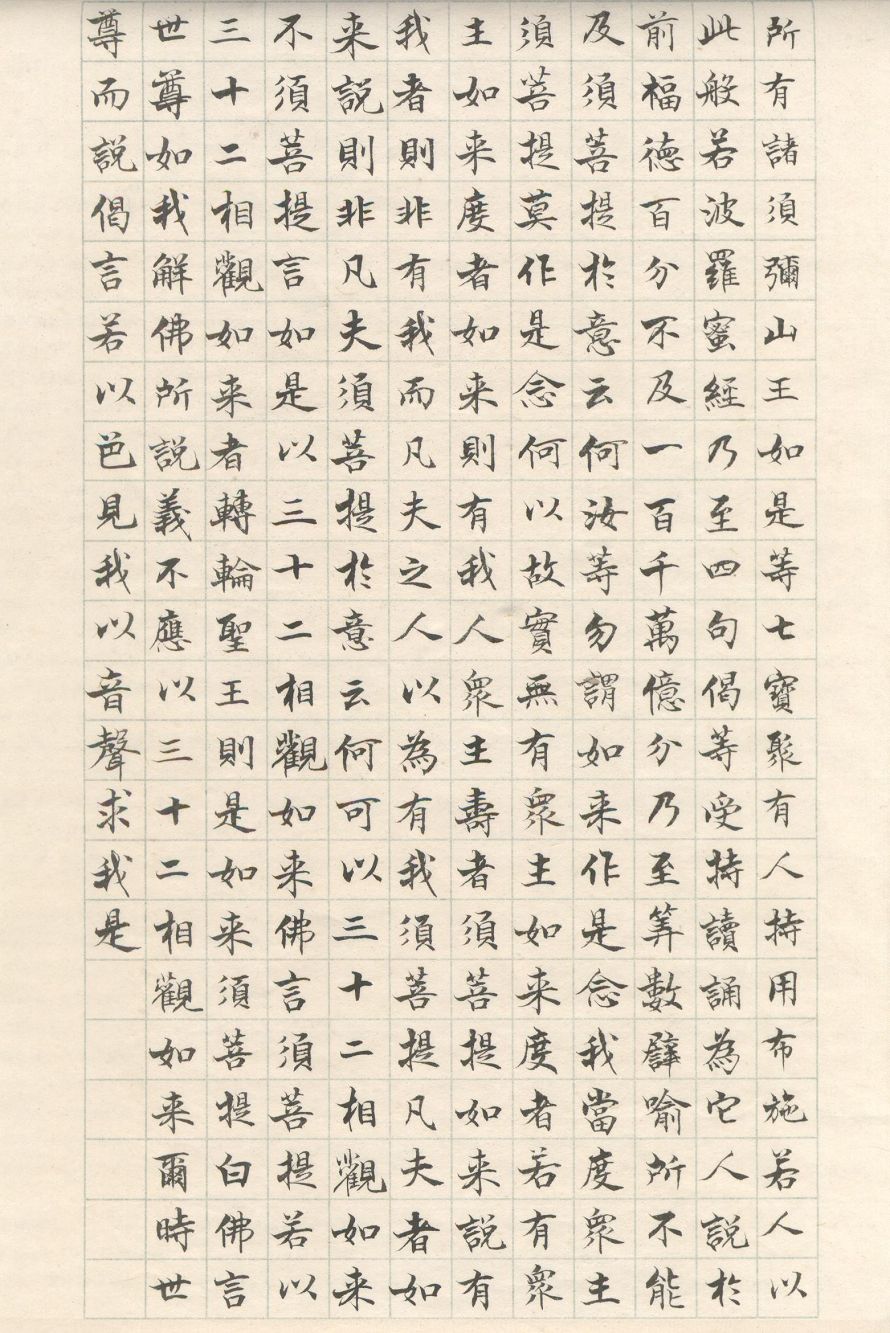 所有諸須彌山王如是等七寶聚有人持用布施若人以
此般若波羅蜜經乃至四句偈等受持讀誦為它人說於
前福德百分不及一百千萬億分乃至筭數譬喻所不能
及須菩提於意云何汝等勿謂如来作是念我當度眾生
須菩提莫作是念何以故實無有眾生如来度者若有眾
生如来度者如来則有我人眾生壽者須菩提如来說有
我者則非有我而凡夫之人以為有我須菩提凡夫者如
来說則非凡夫須菩提於意云何可以三十二相觀如来
不須菩提言如是以三十二相觀如来佛言須菩提若以
三十二相觀如来者轉輪聖王則是如来須菩提白佛言
世尊如我解佛所說義不應以三十二相觀如来爾時世
尊而說偈言若以色見我以音聲求我是